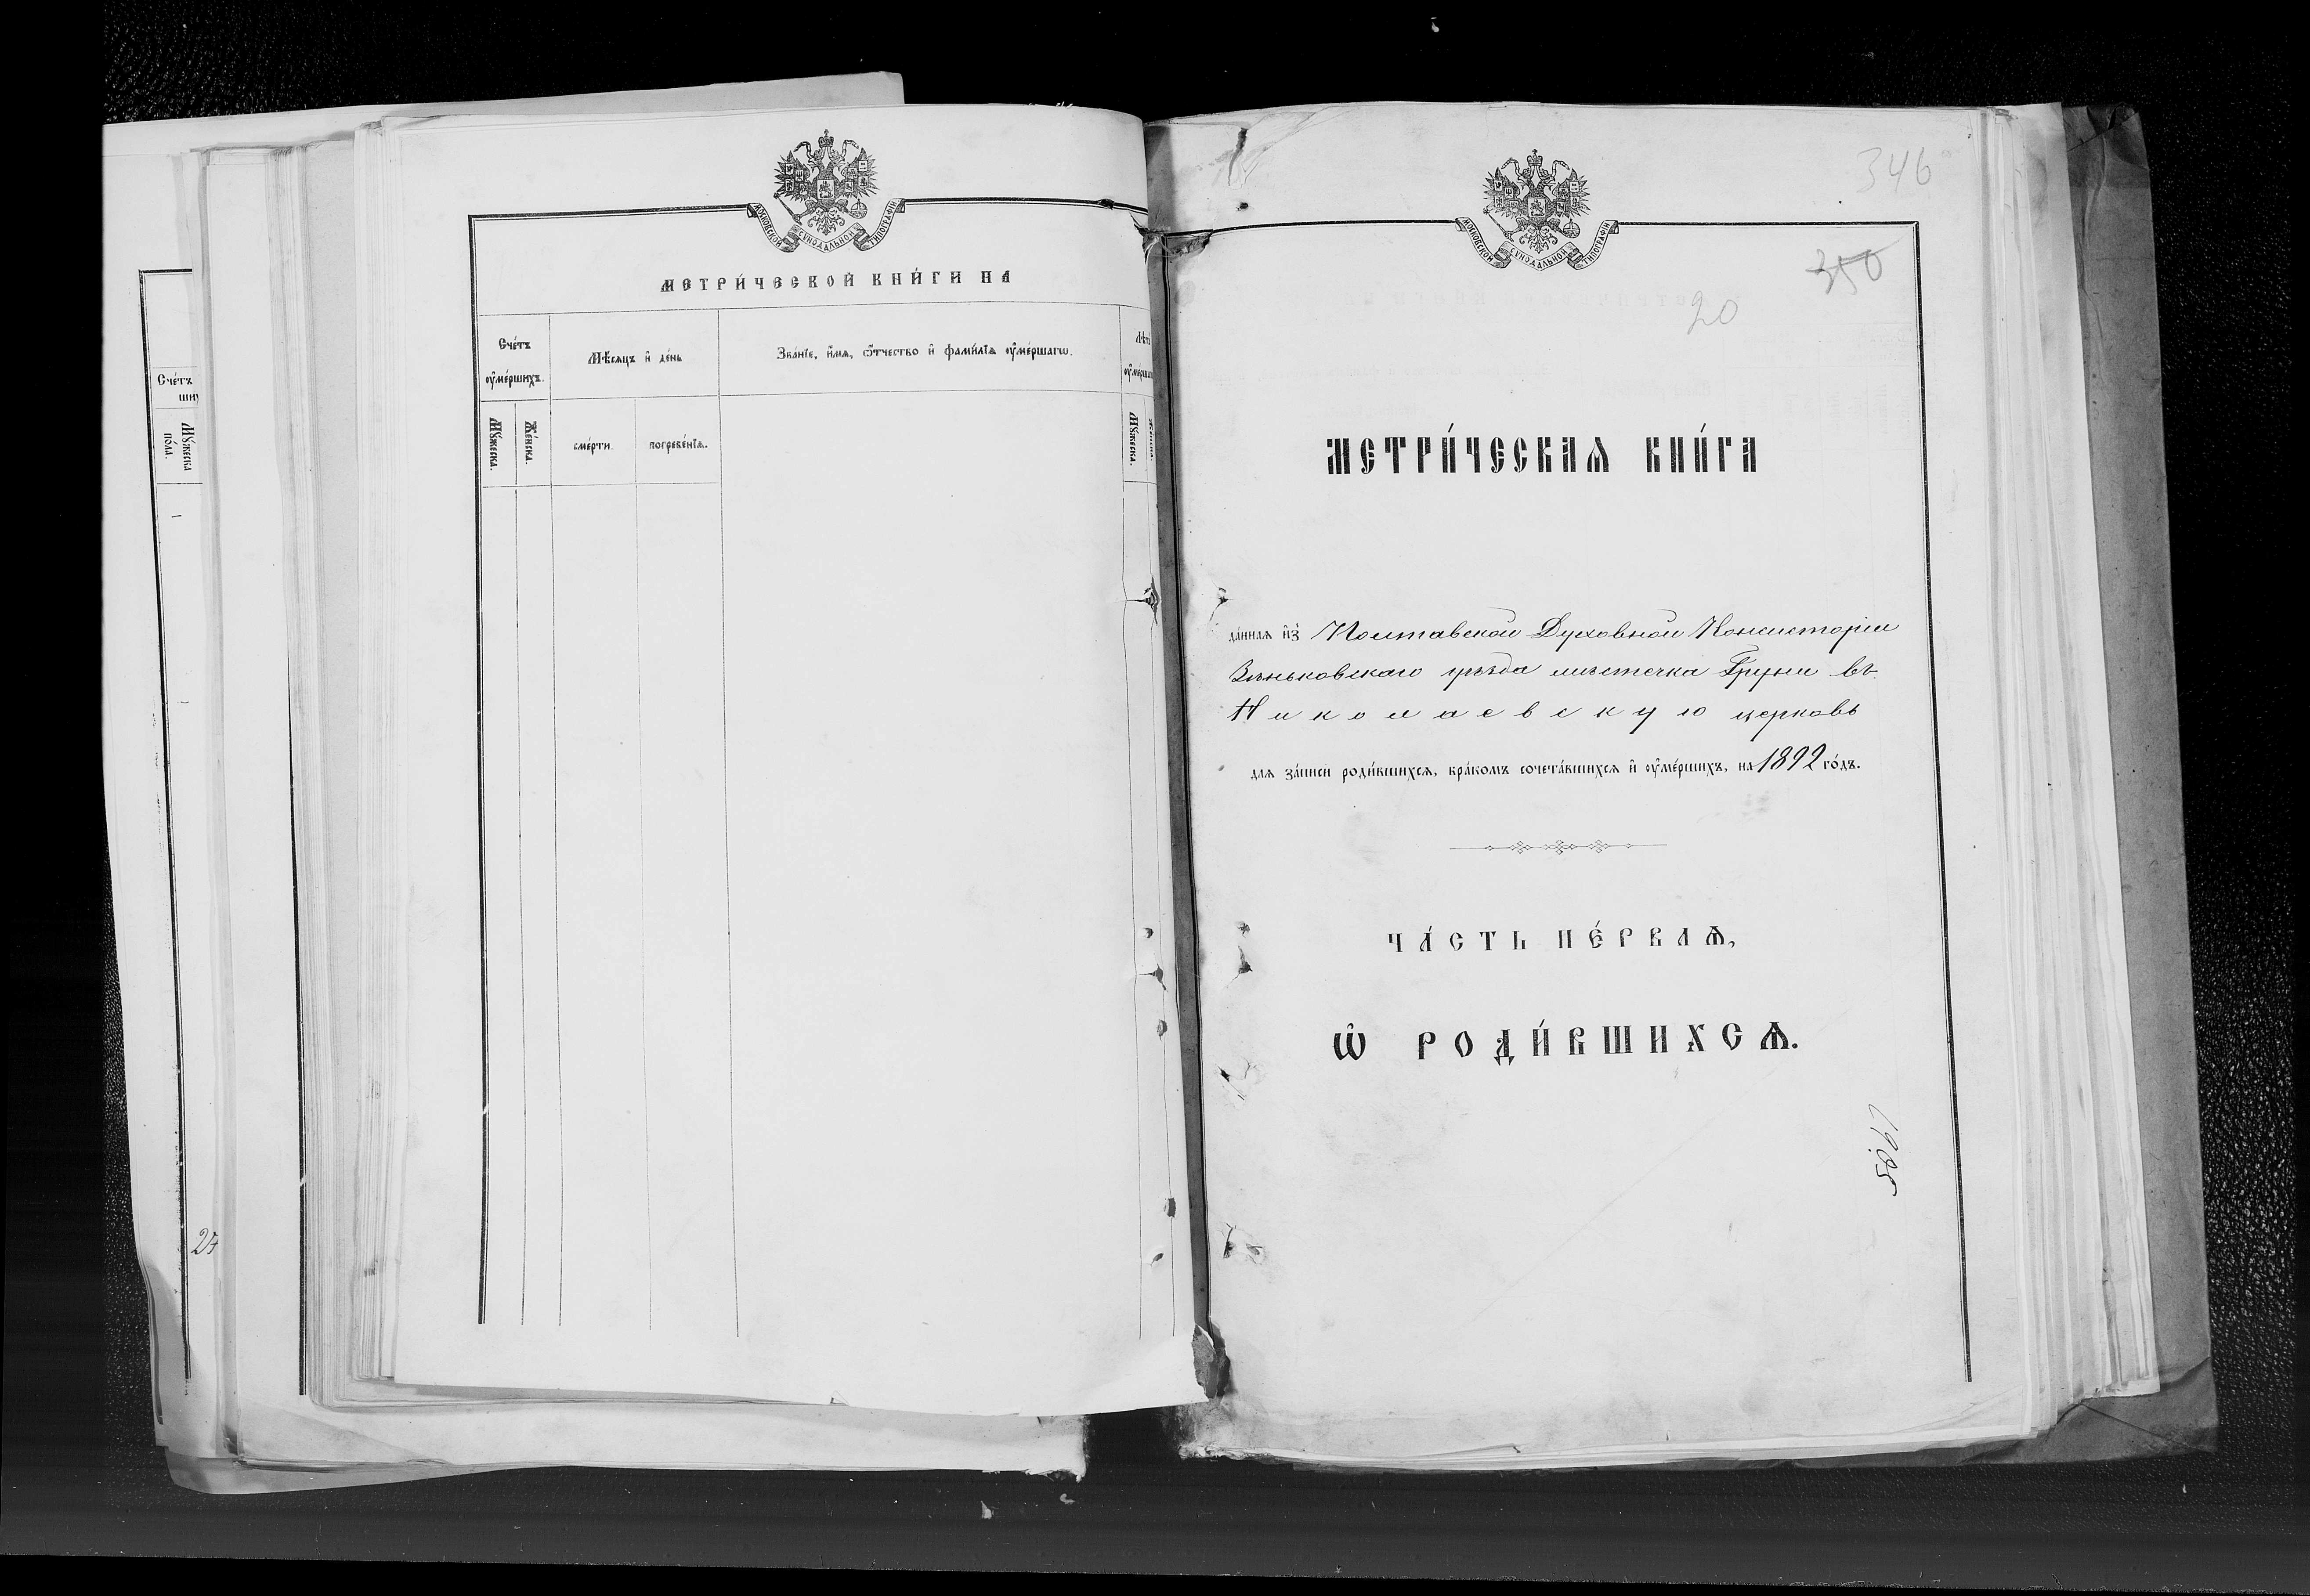 Счетъ
ши
Мꙋжеска
пола.
27
МОСКОВСКОЙ СѴНОДАЛЬНОЙ ТИПОГРАФІИ
МЕТРИ́ЧЕСКОЙ КНИ́ГИ НА
Сче́тъ
ᲂу҆ме́ршихъ.
Мѣсяцъ и҆ де́нь
Зва́нїе, и҆́мѧ, ѻ҆́тчество и҆ фами́лїѧ ᲂу҆ме́ршагѡ.
Лѣт
ᲂу҆ме́рша
Мꙋ́жеска.
Же́нска.
сме́рти.
погребе́нїѧ.
Мꙋ́жеска.
346
МОСКОВСКОЙ СѴНОДАЛЬНОЙ ТИПОГРАФІИ
350
20
МЕТРИ́ЧЕСКАѦ КНИ́ГА
да́ннаѧ и҆з̾ Полтавской Духовной Консисторіи
Зѣньковскаго уѣзда мѣстечка Груни въ
Николаевскую церковь
для за́писи роди́вшихсѧ, бра́комъ сочета́вшихсѧ и҆ ᲂу҆ме́ршихъ, на 1892 го́дъ.
ЧА́СТЬ ПЕ́РВАѦ,
Ѡ҆ РОДИ́ВШИХСѦ.